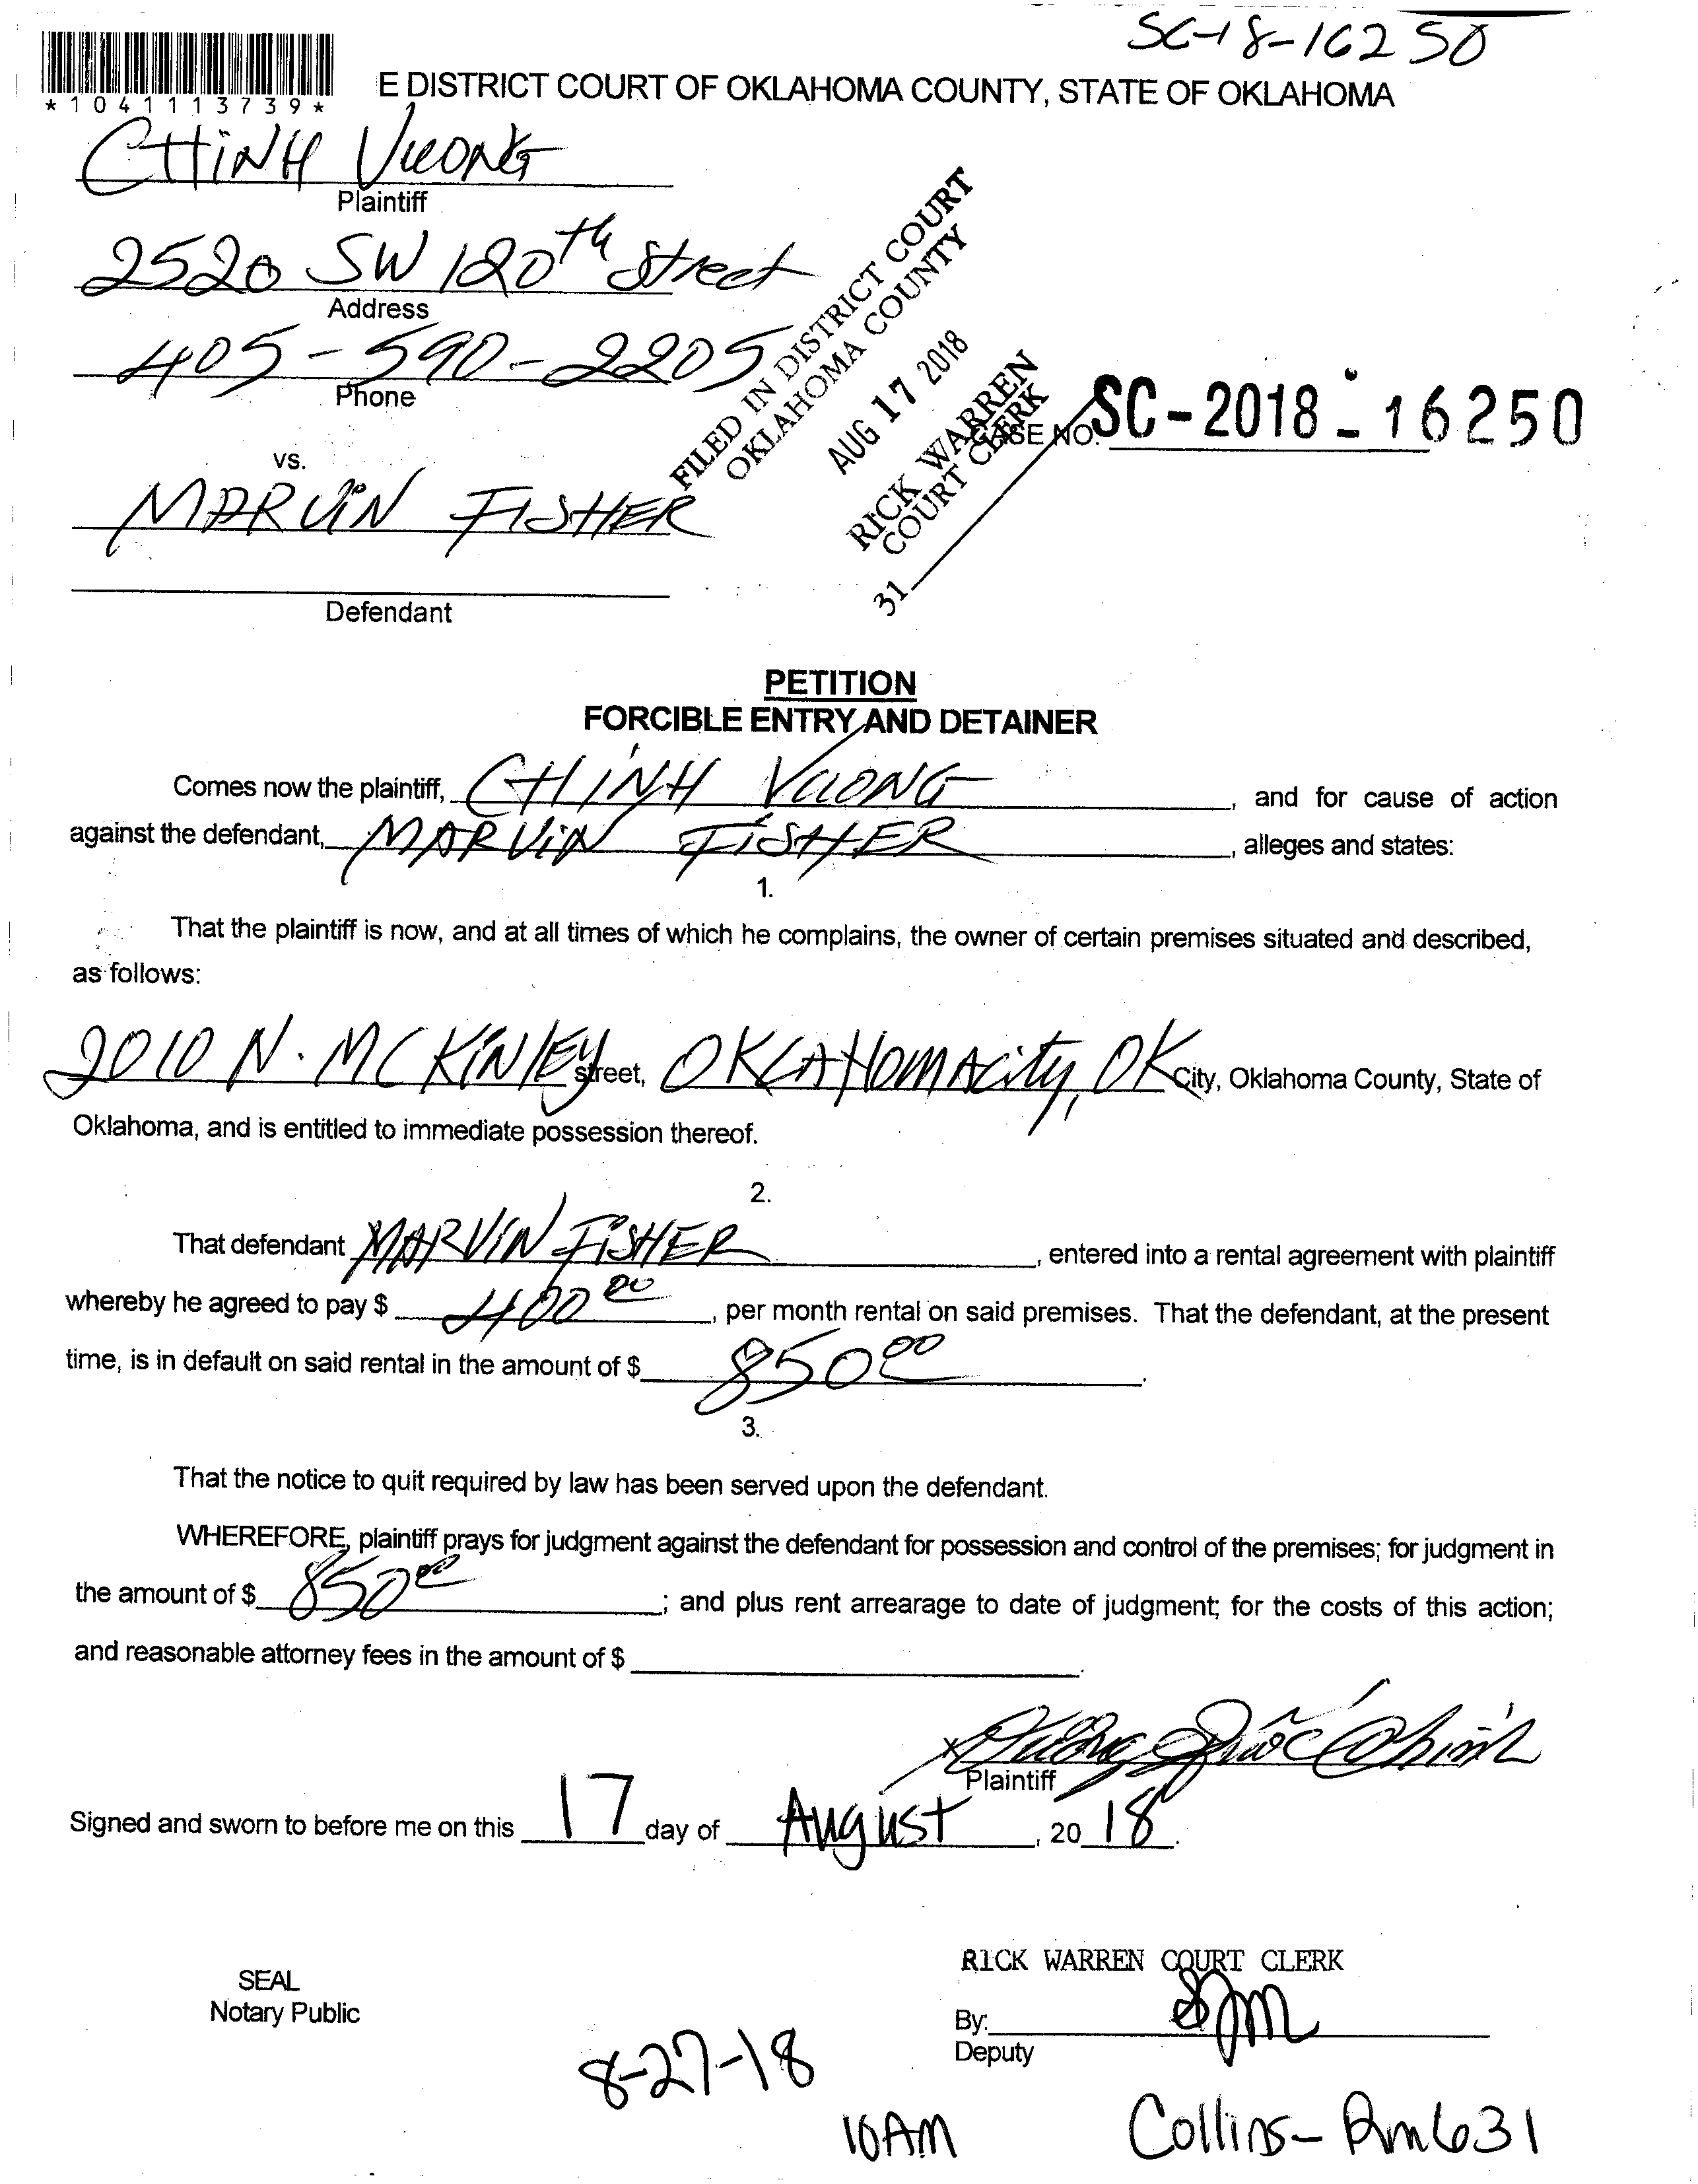 SC-18-16250
*1041113739*
E DISTRICT COURT OF OKLAHOMA COUNTY, STATE OF OKLAHOMA
CHINH VUONG
Plaintiff
2520 SW 120th Street
Address
405-590-2205
Phone
FILED IN DISTRICT COURT
OKLAHOMA COUNTY
AUG 17 2018
RICK WARREN
COURT CLERK
31
CASE NO. SC-2018-16250
vs.
MARVIN FISHER
Defendant
PETITION
FORCIBLE ENTRY AND DETAINER
Comes now the plaintiff, CHINH VUONG, and for cause of action
against the defendant, MARVIN FISHER, alleges and states:
1.
That the plaintiff is now, and at all times of which he complains, the owner of certain premises situated and described,
as follows:
2010 N. MCKINLEY street, OKLAHOMA City, OK City, Oklahoma County, State of
Oklahoma, and is entitled to immediate possession thereof.
2.
That defendant MARVIN FISHER, entered into a rental agreement with plaintiff
whereby he agreed to pay $ 400 00, per month rental on said premises. That the defendant, at the present
time, is in default on said rental in the amount of $ 850 00.
3.
That the notice to quit required by law has been served upon the defendant.
WHEREFORE, plaintiff prays for judgment against the defendant for possession and control of the premises; for judgment in
the amount of $ 850 00; and plus rent arrearage to date of judgment; for the costs of this action;
and reasonable attorney fees in the amount of $ .
x Vương Quốc Chinh
Plaintiff
Signed and sworn to before me on this 17 day of August, 20 18.
RICK WARREN COURT CLERK
SEAL
Notary Public
By:
Deputy
8-27-18
10AM
Collins- Rm631